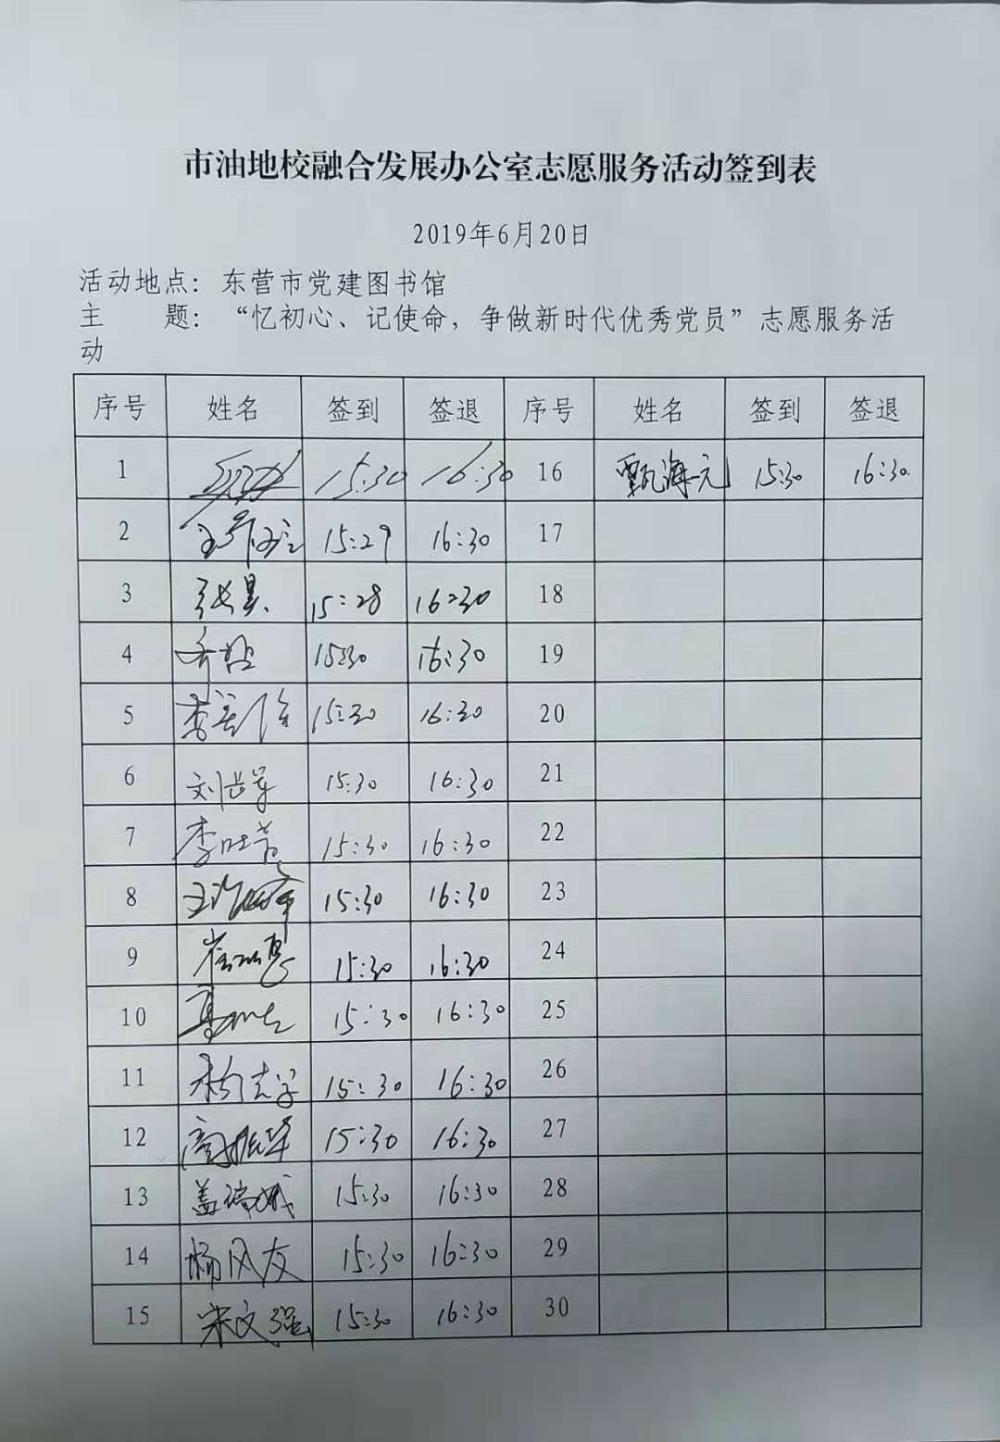 市油地校融合发展办公室志愿服务活动签到表
2019年6月20日
活动地点：东营市党建图书馆
主　　题：“忆初心、记使命，争做新时代优秀党员”志愿服务活
动
序号 姓名 签到 签退 序号 姓名 签到 签退
1 15:30 16:30 16 甄海元 15:30 16:30
2 15:29 16:30 17
3 张昊 15:28 16:30 18
4 15:30 16:30 19
5 15:30 16:30 20
6 15:30 16:30 21
7 15:30 16:30 22
8 15:30 16:30 23
9 15:30 16:30 24
10 15:30 16:30 25
11 15:30 16:30 26
12 15:30 16:30 27
13 15:30 16:30 28
14 杨风友 15:30 16:30 29
15 宋文强 15:30 16:30 30